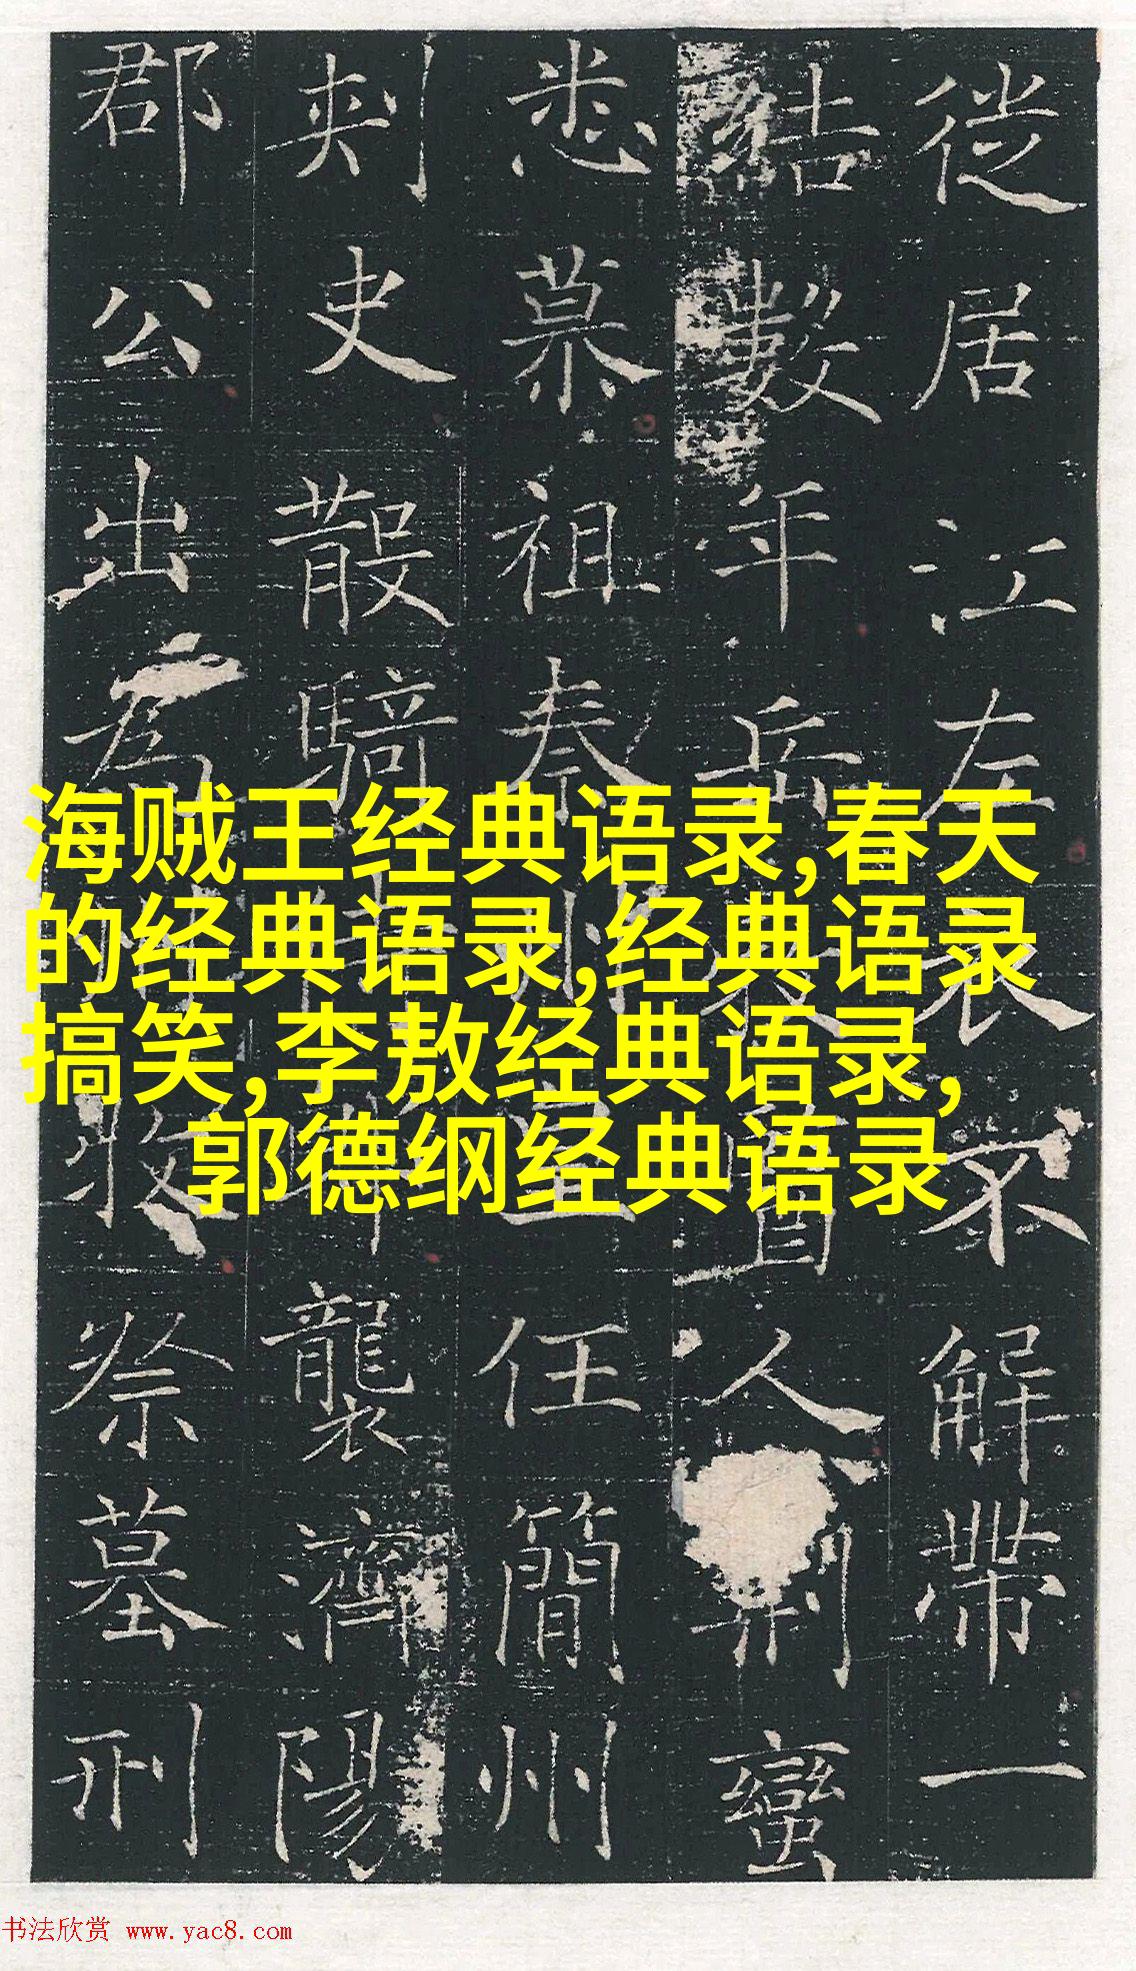 徙居江左衣不解帶一
數年人蠻
悉慕祖泰任簡州
刺史散騎襲濟陽
郡公出為祭墓刑
海贼王经典语录,春天
的经典语录,经典语录
搞笑,李敖经典语录,
郭德纲经典语录
书法欣赏 www.yac8.com